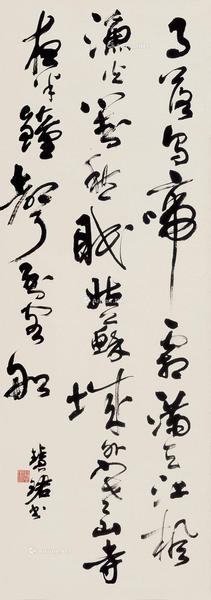 月落烏啼霜滿天江楓
漁火對愁眠姑蘇城外寒山寺
夜半鐘聲到客船
珺书